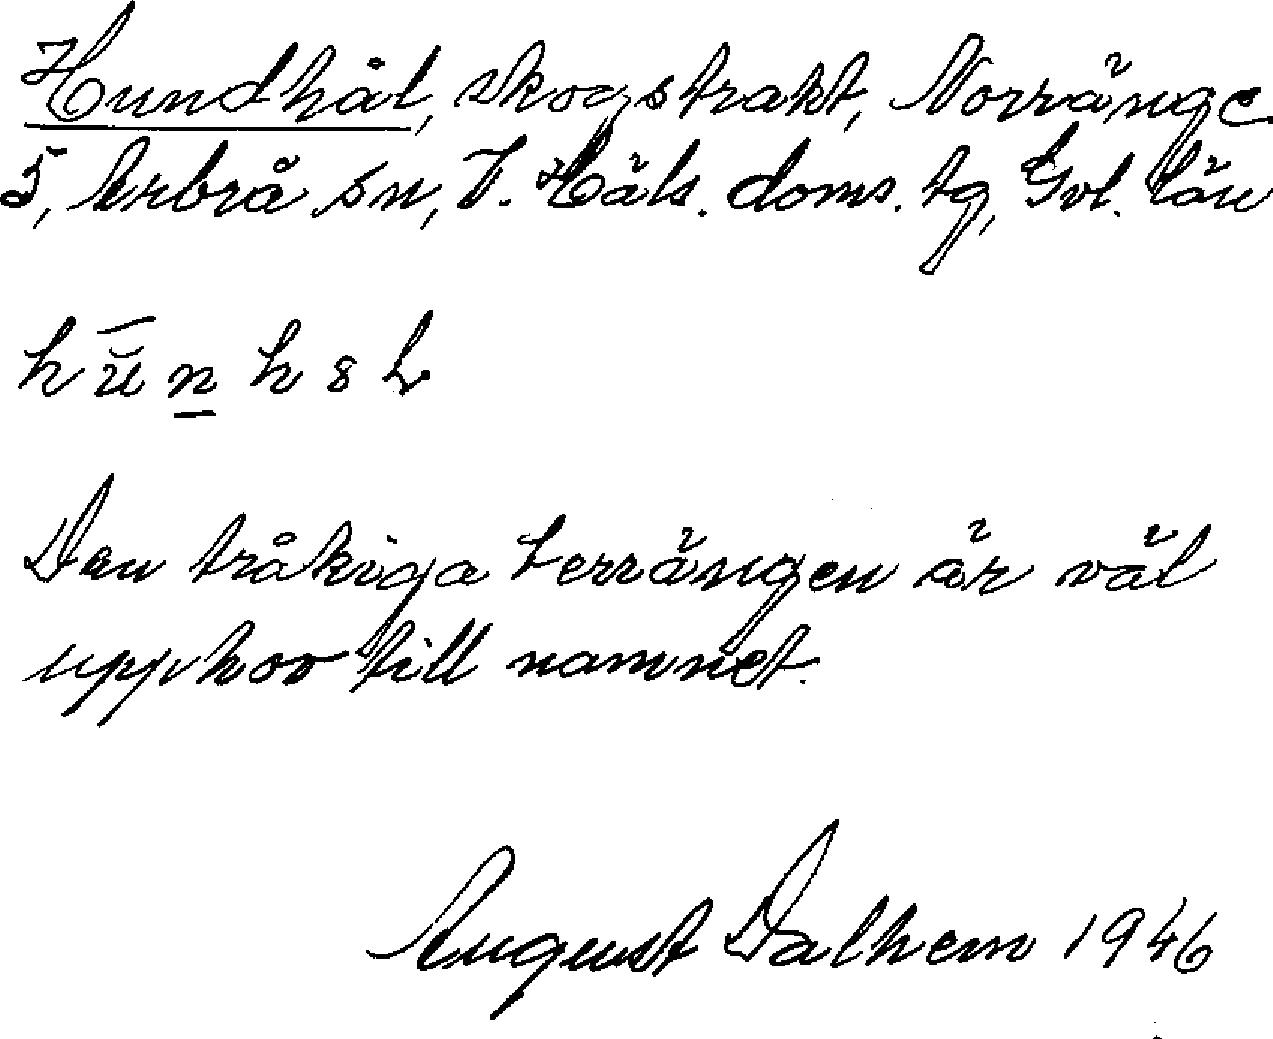 Hundhål, skogstrakt, Norränge
5, Arbrå sn, V. Häls. doms. tg, Gvl. län
Den tråkiga terrängen är väl
upphov till namnet.
August Dalhem 1946